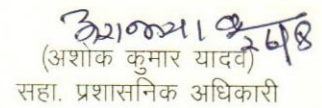 26/8
(अशोक कुमार यादव)
सहा. प्रशासनिक अधिकारी